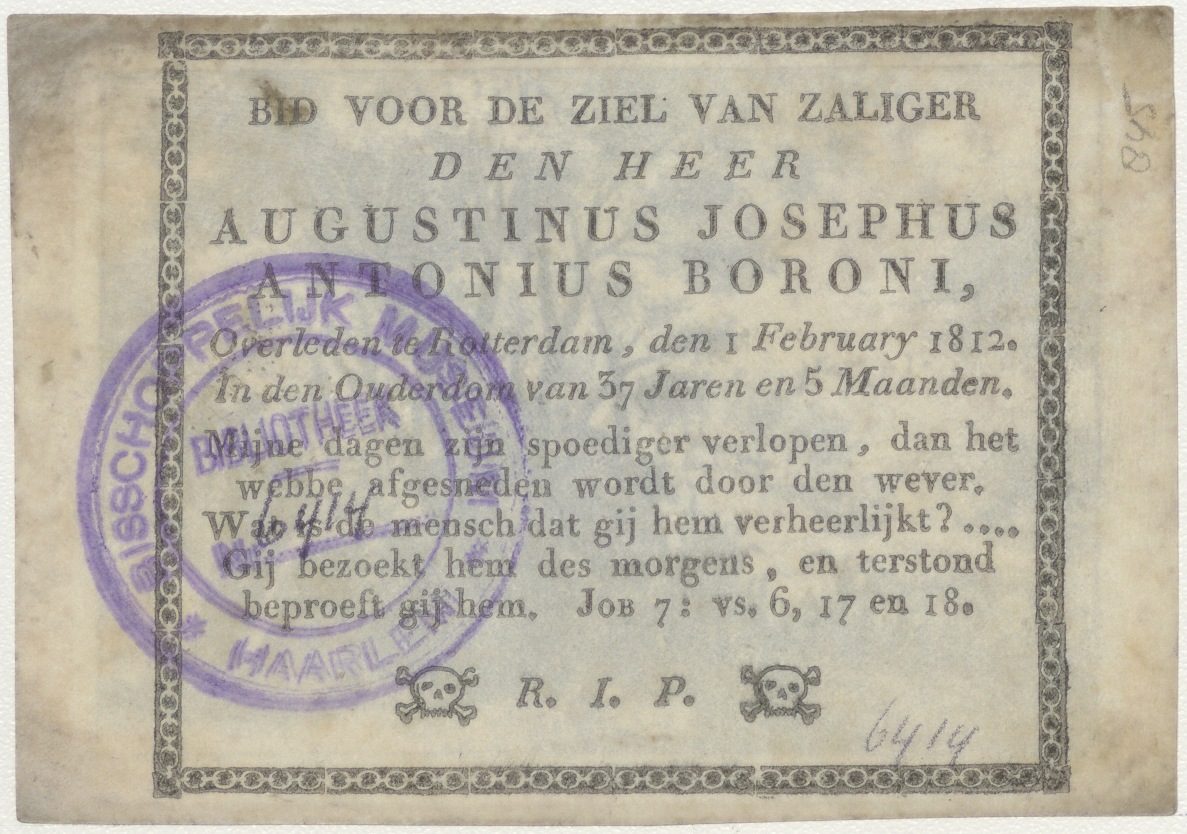 BID VOOR DE ZIEL VAN ZALIGER
DEN HEER
AUGUSTINUS JOSEPHUS
ANTONIUS BORONI,
Overleden te Rotterdam, den 1 February 1812.
In den Ouderdom van 37 Jaren en 5 Maanden.
Mijne dagen zijn spoediger verlopen, dan het
webbe afgesneden wordt door den wever.
Wat is de mensch dat gij hem verheerlijkt? ....
Gij bezoekt hem des morgens, en terstond
beproeft gij hem. JOB 7: vs. 6, 17 en 18.
R. I. P.
6414
845
BISSCHOPPELIJK MUSEUM
HAARLEM
BIBLIOTHEEK
6414